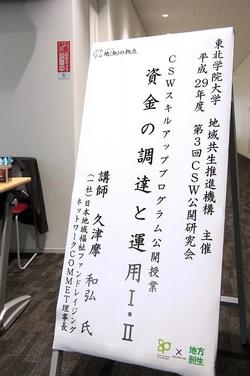 地(知)の拠点
東北学院大学 地域共生推進機構 主催
平成29年度 第3回CSW公開研究会
CSWスキルアッププログラム公開授業
資金の調達と運用Ⅰ・Ⅱ
講師 久津摩 和弘 氏
(一社)日本地域福祉ファンドレイジング
ネットワークCOMMET理事長
×
地方
創生